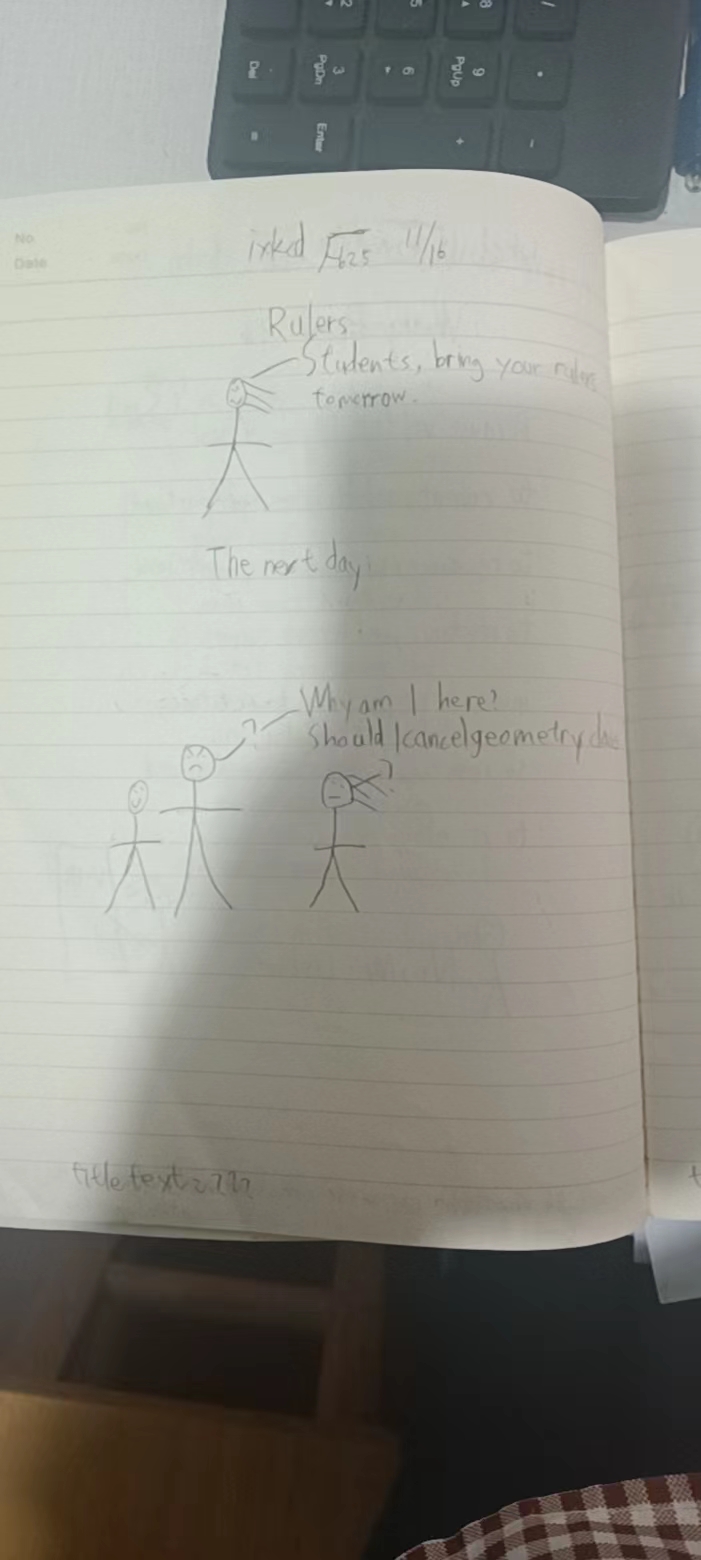 2
5
8
/
Del
.
3
PgDn
6
9
PgUp
*
=
Enter
+
-
No.
Date
irked √625 11/16
Rulers
Students, bring your rulers
tomorrow.
The next day
?
Why am I here?
Should I cancel geometry
?
title text: ???
t